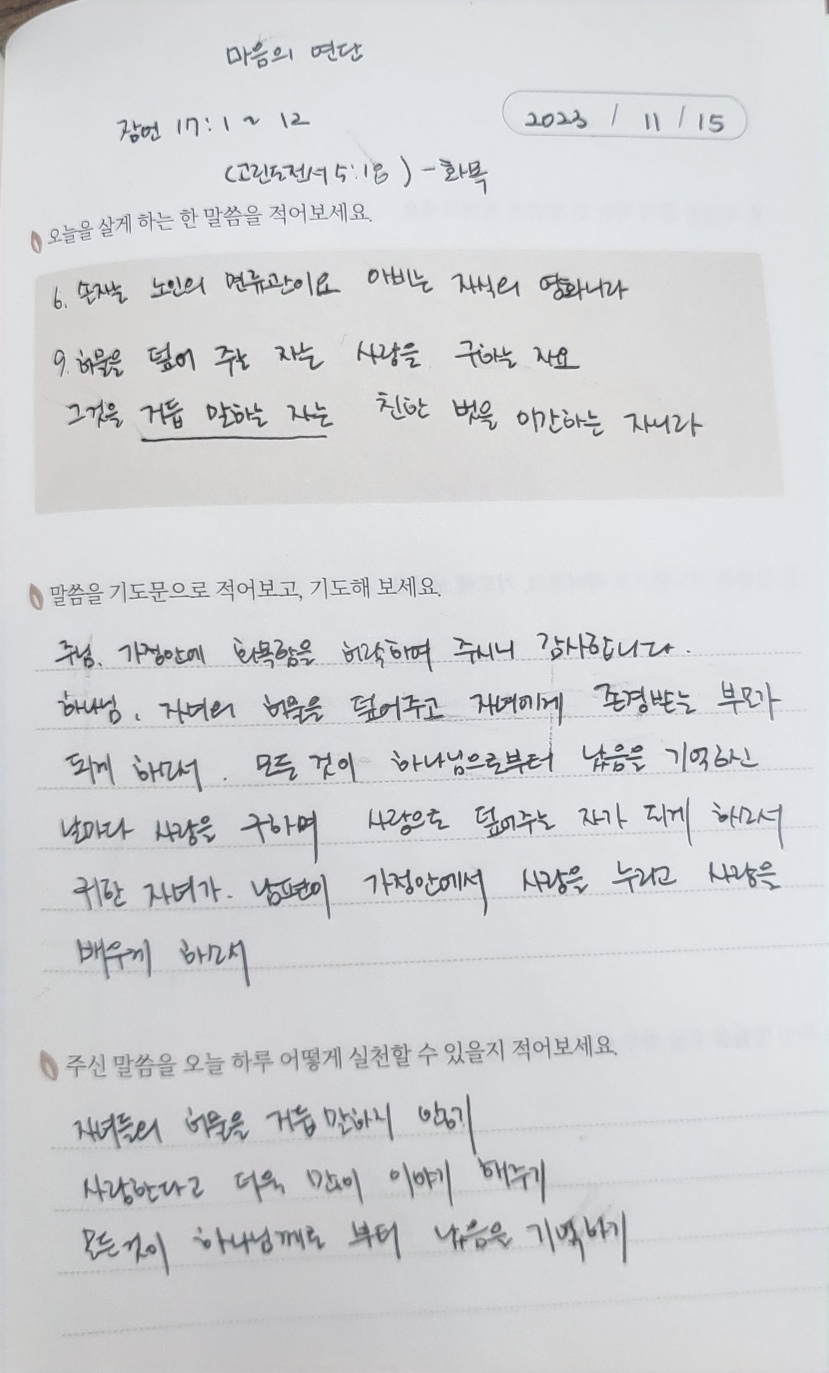 마음의 연단
잠언 17:1 ~ 12
2023 / 11 / 15
(고린도전서 5:18) - 화목
오늘을 살게 하는 한 말씀을 적어보세요.
6. 손자는 노인의 면류관이요 아비는 자식의 영화니라
9. 허물을 덮어 주는 자는 사랑을 구하는 자요
그것을 거듭 말하는 자는 친한 벗을 이간하는 자니라
말씀을 기도문으로 적어보고, 기도해 보세요.
주님. 가정안에 화목함을 허락하여 주시니 감사합니다.
하나님. 자녀의 허물을 덮어주고 자녀에게 존경받는 부모가
되게 하소서. 모든 것이 하나님으로부터 났음을 기억하신
날마다 사랑을 구하며 사랑으로 덮어주는 자가 되게 하소서
귀한 자녀가. 남편이 가정안에서 사랑을 누리고 사랑을
배우게 하소서
주신 말씀을 오늘 하루 어떻게 실천할 수 있을지 적어보세요.
자녀들의 허물을 거듭 말하지 않기
사랑한다고 더욱 많이 이야기 해주기
모든것이 하나님께로 부터 났음을 기억하기